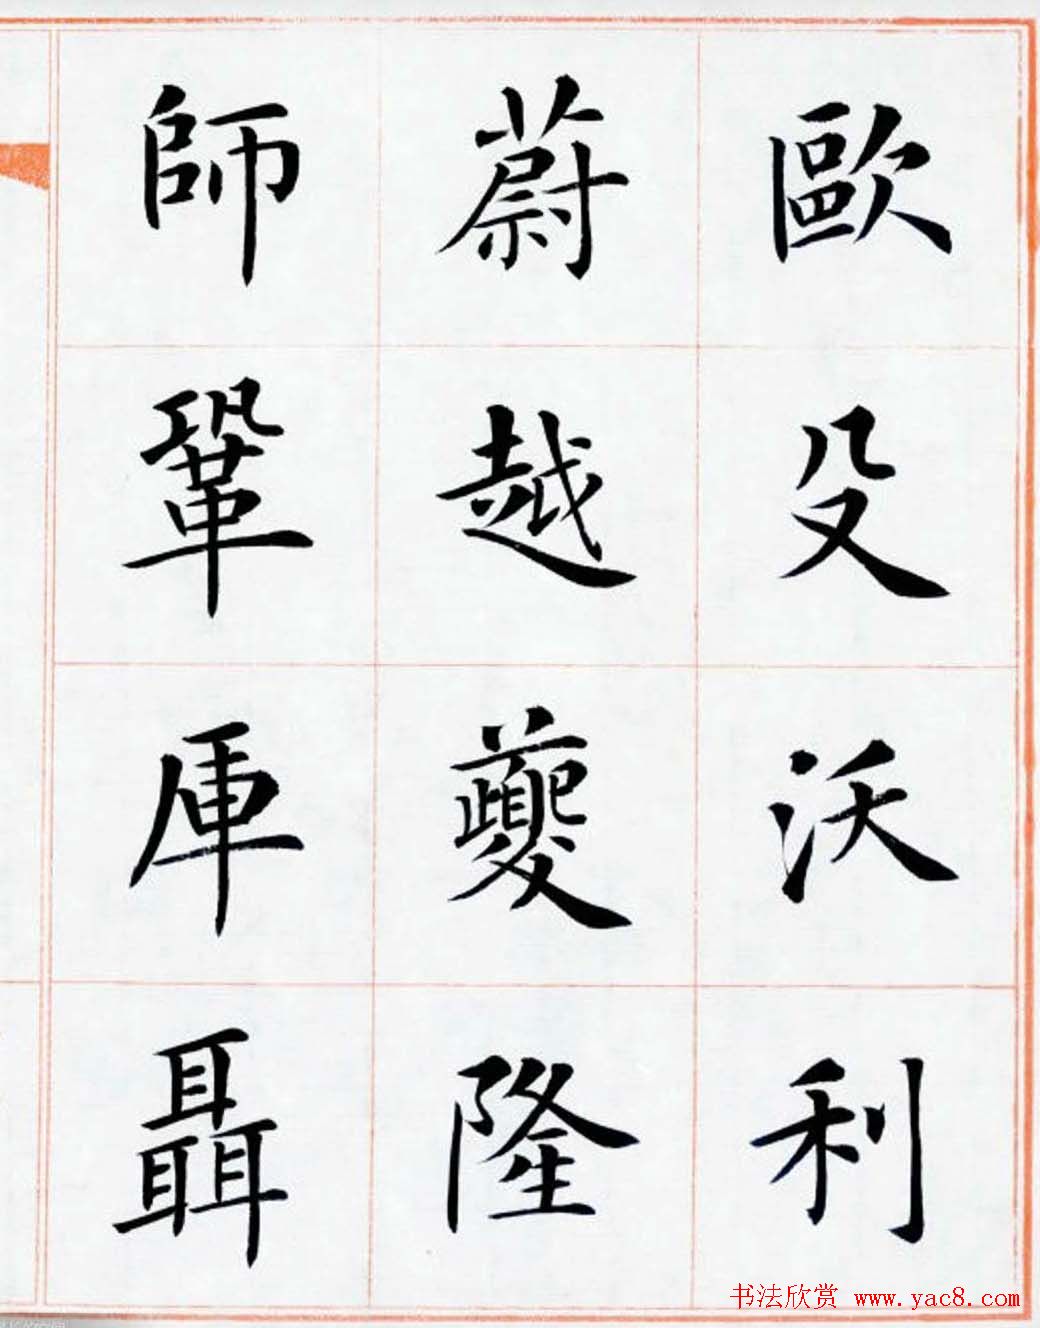 歐殳沃利
蔚越夔隆
師鞏厙聶
书法欣赏 www.yac8.com